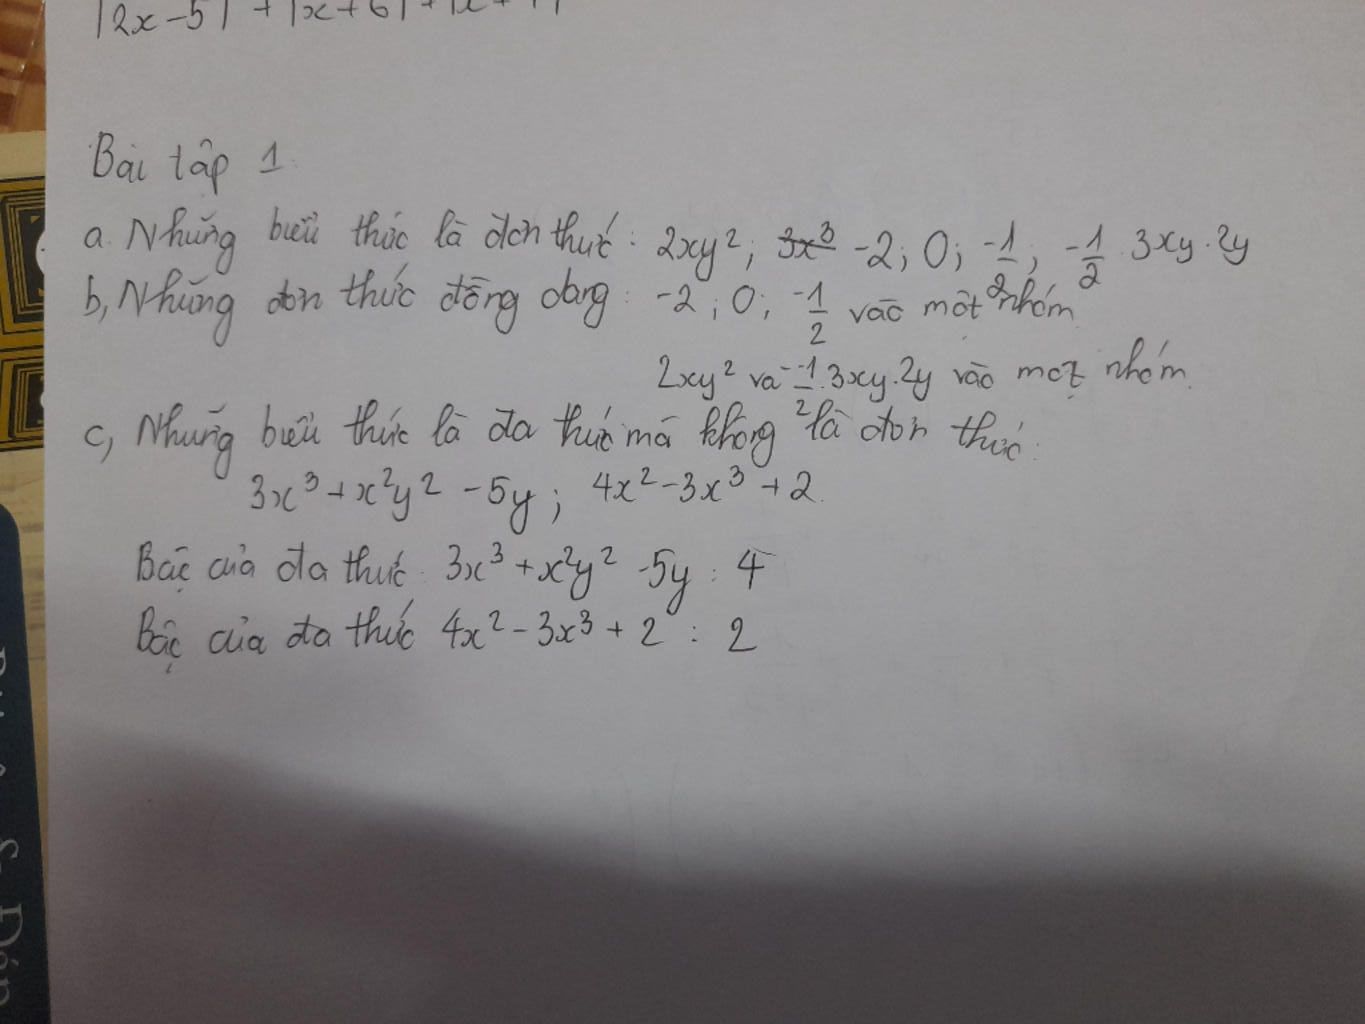 |2x-5| + |x+6| + |x+
Bài tập 1
a. Những biểu thức là đơn thức: 2xy²; -2; 0; -1/2; -1/2 . 3xy . 2y
b, Những đơn thức đồng dạng: -2; 0; -1/2 vào một nhóm
2xy² và -1/2 . 3xy . 2y vào một nhóm.
c, Những biểu thức là đa thức mà không là đơn thức:
3x³ + x²y² - 5y; 4x² - 3x³ + 2.
Bậc của đa thức 3x³ + x²y² - 5y : 4
Bậc của đa thức 4x² - 3x³ + 2 : 2
& Đáp